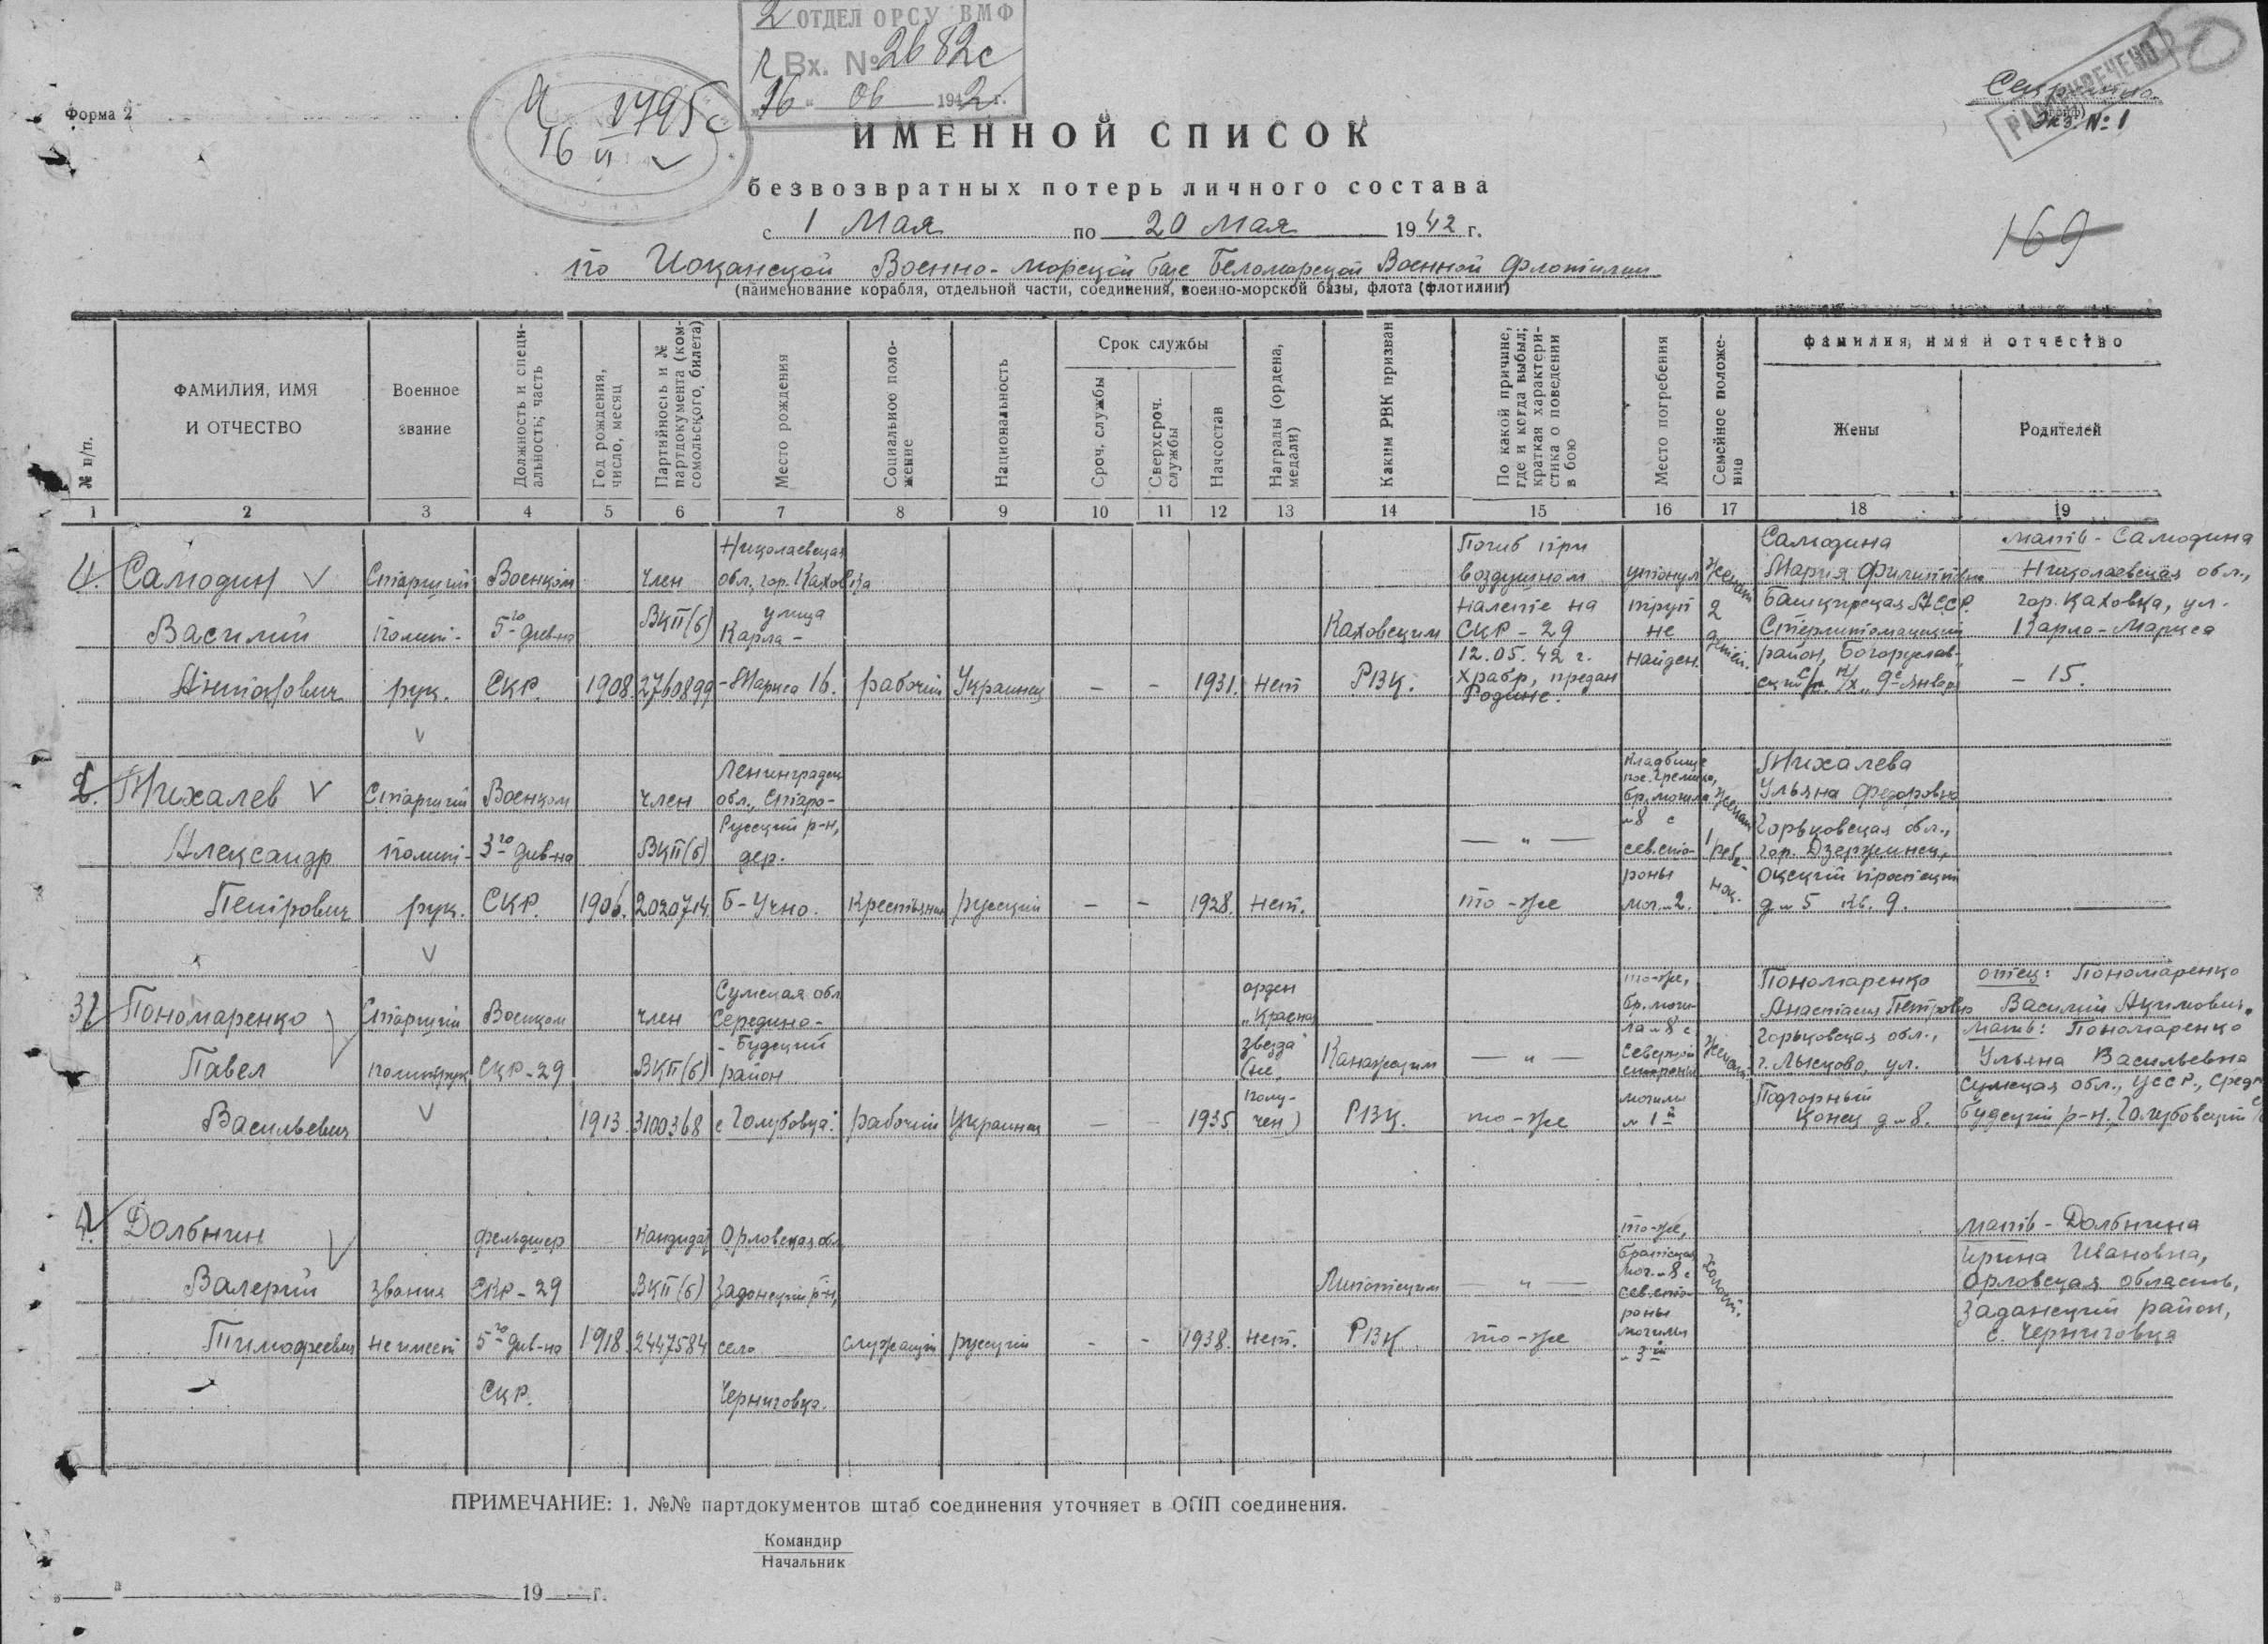 2 ОТДЕЛ ОРСУ ВМФ
Вх. № 2682с
"16" 06 1942 г.
Форма 2
1795с
16 VI
Секретно
РАССЕКРЕЧЕНО
Экз. № 1
ИМЕННОЙ СПИСОК
безвозвратных потерь личного состава
с 1 Мая по 20 Мая 1942 г.
169
по Иоканской Военно-морской базе Беломорской Военной Флотилии
(наименование корабля, отдельной части, соединения, военно-морской базы, флота (флотилии)
№ п/п.
ФАМИЛИЯ, ИМЯ
И ОТЧЕСТВО
Военное
звание
Должность и специ-
альность; часть
Год рождения,
число, месяц
Партийность и №
партдокумента (ком-
сомольского, билета)
Место рождения
Социальное поло-
жение
Национальность
Срок службы
Сроч. службы
Сверхсроч.
службы
Начсостав
Награды (ордена,
медали)
Каким РВК призван
По какой причине,
где и когда выбыл;
краткая характери-
стика о поведении
в бою
Место погребения
Семейное положе-
ние
фамилия, имя и отчество
Жены
Родителей
1 2 3 4 5 6 7 8 9 10 11 12 13 14 15 16 17 18 19
Самодин
Василий
Антонович
Старший
полит-
рук.
Военком
5го див-на
СКР.
1908.
член
ВКП(б)
2760899
Николаевская
обл., гор. Каховка
улица
Карла-
-Маркса 16.
рабочий
Украинец
-
-
1931.
нет
Каховским
РВК.
Погиб при
воздушном
налете на
СКР-29
12.05.42 г.
Храбр, предан
Родине.
утонул
труп
не
найден.
Женат
2
детей.
Самодина
Мария Филипповна
Башкирская АССР.
Стерлитамакский
район, Богоруслав-
ский с/с. К/х "9е Января
мать - Самодина
Николаевская обл.,
гор. Каховка, ул.
Карло-Маркса
- 15.
2.
Михалев
Александр
Петрович
Старший
полит-
рук.
Военком
3го див-на
СКР.
1906.
член
ВКП(б)
2020714
Ленинградск
обл., Старо-
Русский р-н,
дер.
Б-Учно.
Крестьянин
русский
-
-
1928.
нет.
— " —
то-же
Кладбище
пос. Гремиха,
бр. могила
№8 с
сев. сто-
роны
мог. №2.
Женат
1 ребе-
нок.
Михалева
Ульяна Федоровна
Горьковская обл.,
гор. Дзержинск,
Окский проспект
д №5 кв. 9.
3.
Пономаренко
Павел
Васильевич
Старший
политрук
Военком
СКР-29
1913.
член
ВКП(б)
3100368
Сумская обл
Середино-
-Будский
район
с Голубовка.
рабочий
Украинец
-
-
1935
орден
"Красная
звезда"
(не
полу-
чен)
РВК.
— " —
то-же
то-же,
бр. моги-
ла №8 с
северной
стороны
могилы
№ 1й
Женат.
Пономаренко
Анастасия Петровна
Горьковская обл.,
г. Лысково, ул.
Подгорный
Конец д №8.
отец: Пономаренко
Василий Акимович.
мать: Пономаренко
Ульяна Васильевна
Сумская обл., УССР.,
Будский р-н, Голубовский
4.
Долбнин
Валерий
Тимофеевич
звания
не имеет
фельдшер
СКР-29
5го див-на
СКР.
1918.
Кандидат
ВКП(б)
2447584
Орловская обл.
Задонский р-н,
село
Черниговка.
служащий
русский
-
-
1938.
нет.
Липецким
РВК.
— " —
то-же
то-же,
братская
мог. №8 с
сев. сто-
роны
могилы
№ 3й
Холост.
мать - Долбнина
Ирина Ивановна,
Орловская область,
Задонский район,
с. Черниговка
ПРИМЕЧАНИЕ: 1. №№ партдокументов штаб соединения уточняет в ОПП соединения.
Командир
Начальник
19 г.